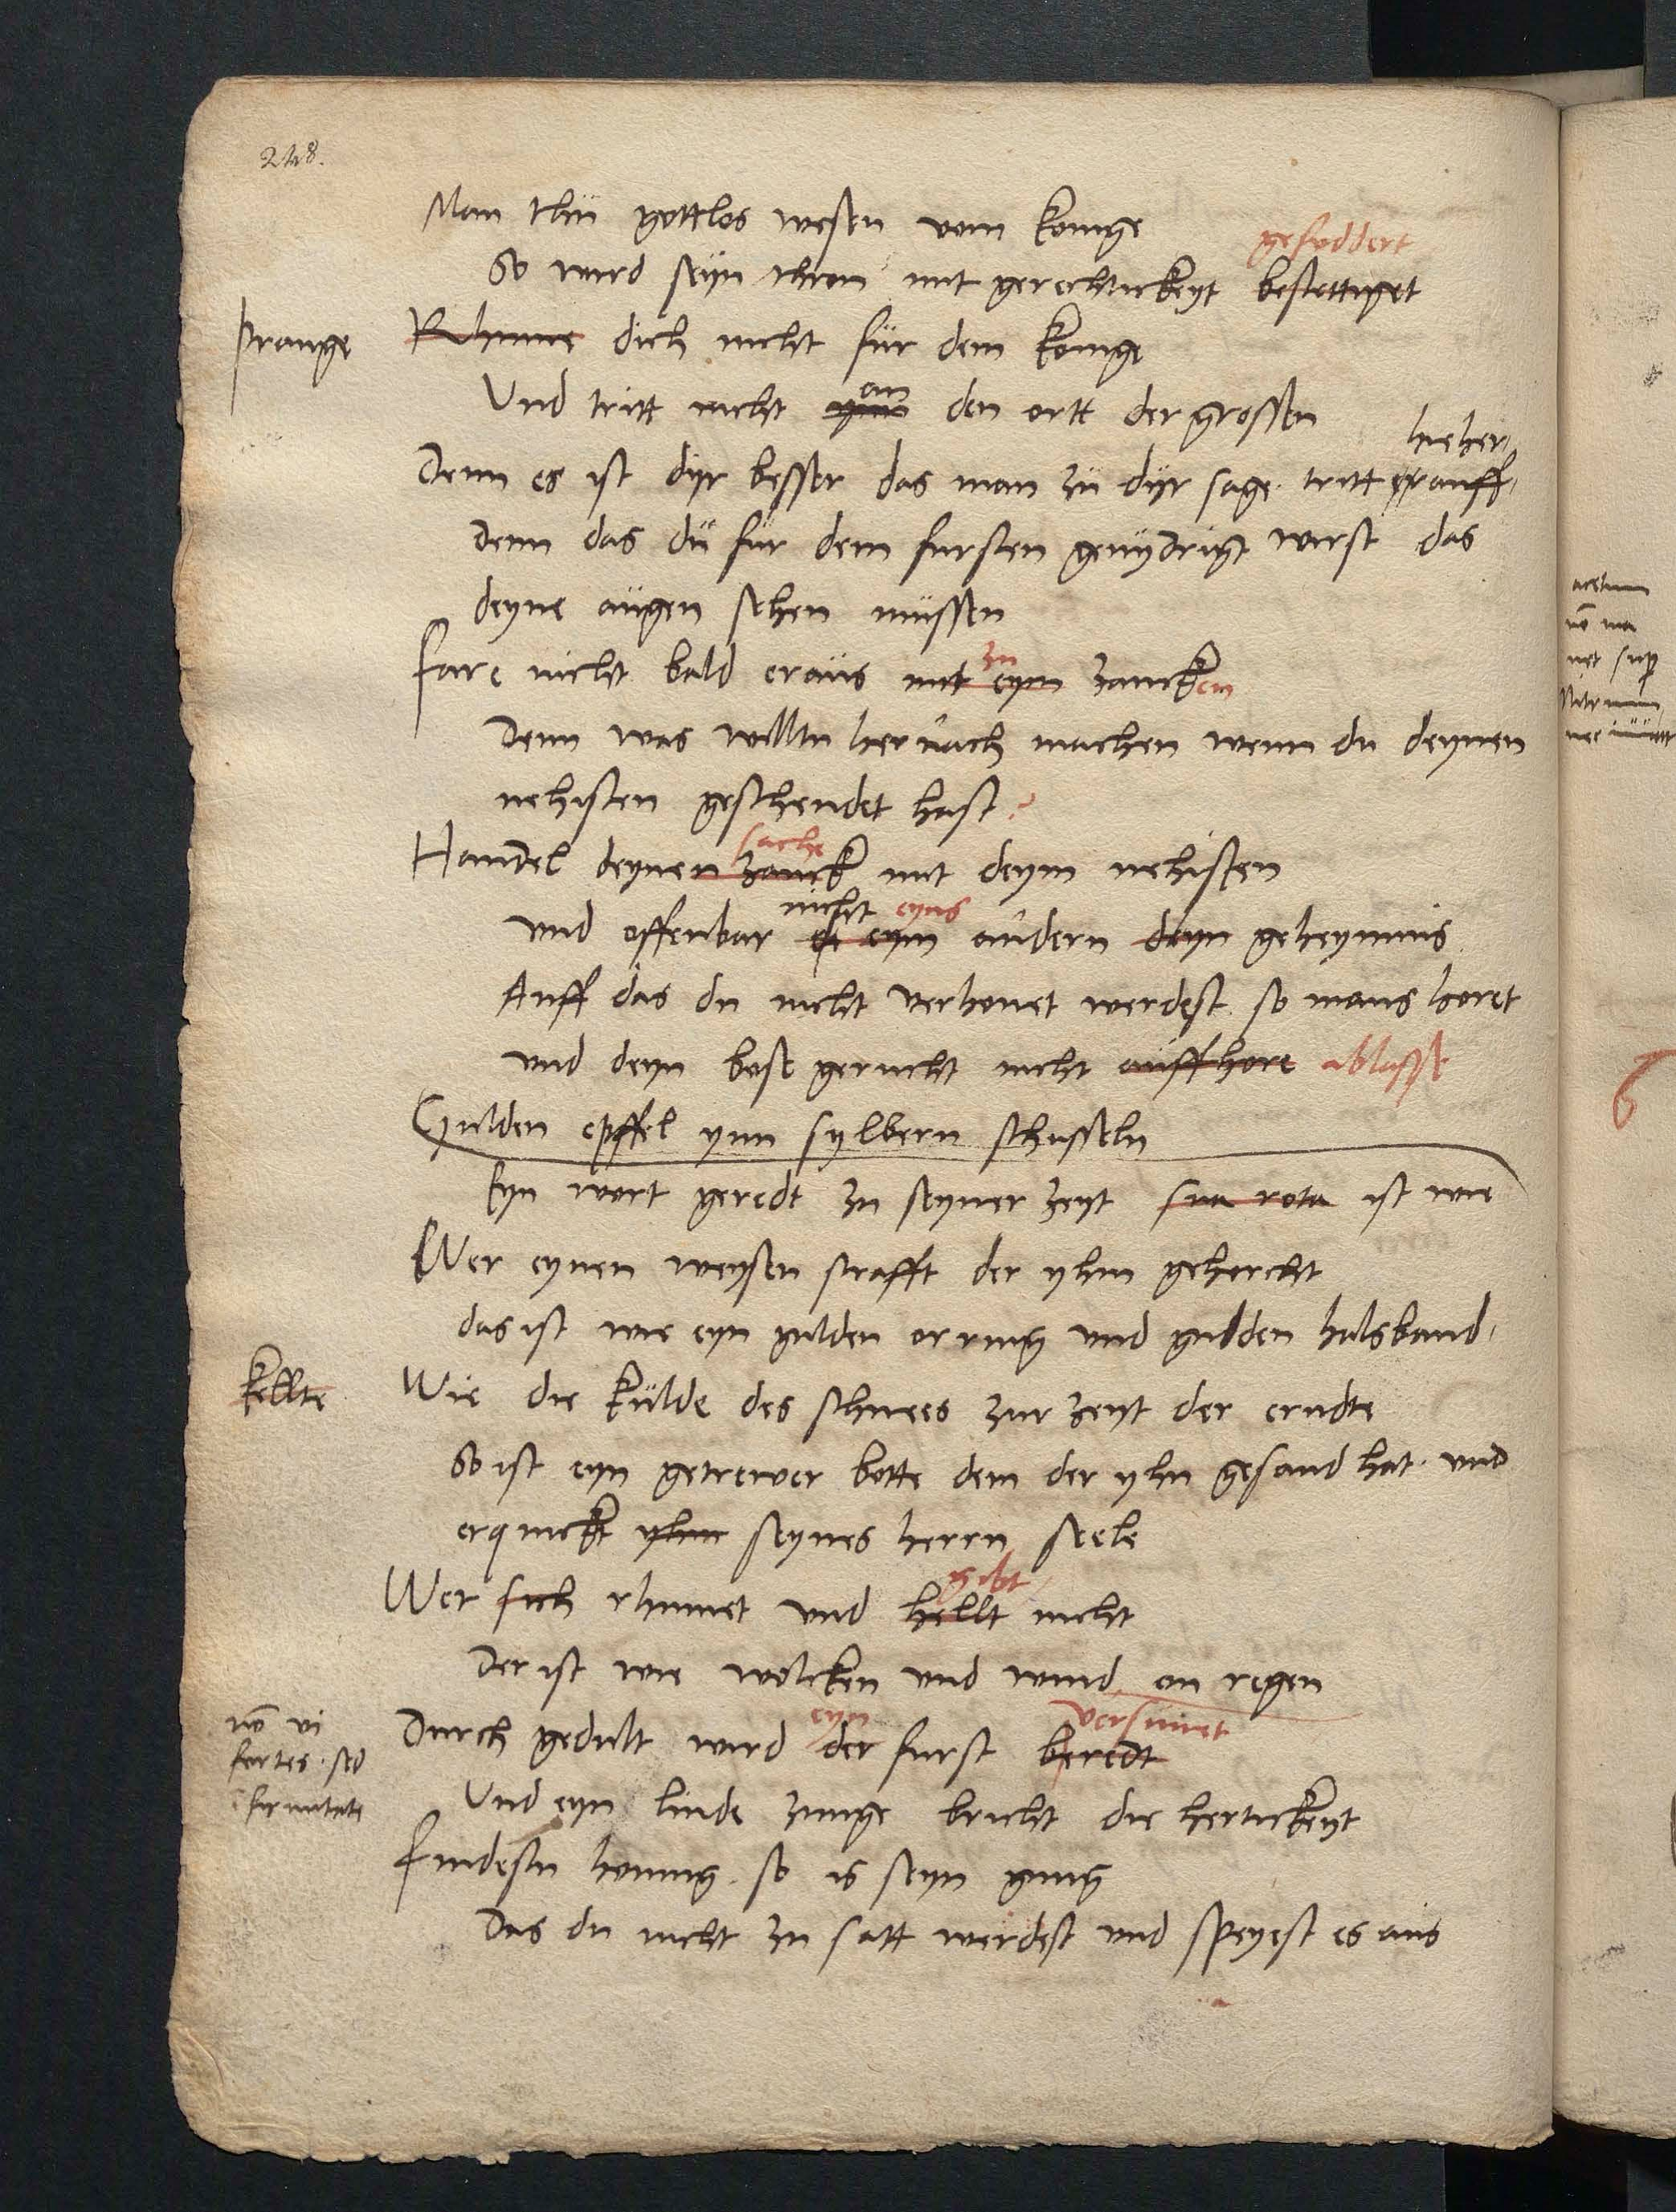 248.
Man thu gottlos wesen vom konige
gefoddert
So wird seyn thron mit gerechtickeyt bestettiget
prange Rhume dich nicht fur dem konige
an
Und tritt nicht den ortt der grossen
hieher,
Denn es ist dyr besser das man zu dyr sage. tritt erauff,
Denn das du fur dem fursten genydrigt wirst das
deyne augen sehen mussen
zu
Fare nicht bald eraus mit eym zancken
Denn was willtu hernach machen wenn du deynen
nehisten geschendet hast?
sache
Handel deynen zanck mit deym nehisten
nicht eyns
und offenbar eym andern deyn geheymnis
Auff das du nicht verhonet werdest so mans horet
und deyn bose gerucht nicht auffhore ablasse
Gulden epffel ynn sylbern schusseln
Eyn wort geredt zu seyner zeyt sua rota ist wie
Wer eynen weysen strafft der yhm gehorcht
das ist wie eyn gulden orring und gulden halsband,
kellte Wie die kulde des schnees zur zeyt der erndte
So ist eyn getrewer botte dem der yhn gesand hat. und
erquickt yhm seynes herrn seele
gibt
Wer sich rhumet und hellt nicht
Der ist wie wolcken und wind on regen
eyn versunet
nō vi Durch gedult wird der furst beredt
fortes. sed
firmitate Und eyn linde zunge bricht die hertickeyt
Findestu honnig. so is seyn gnug
Das du nicht zu satt werdest und speyest es aus
acetum
nō ma
net sup
Nitrum